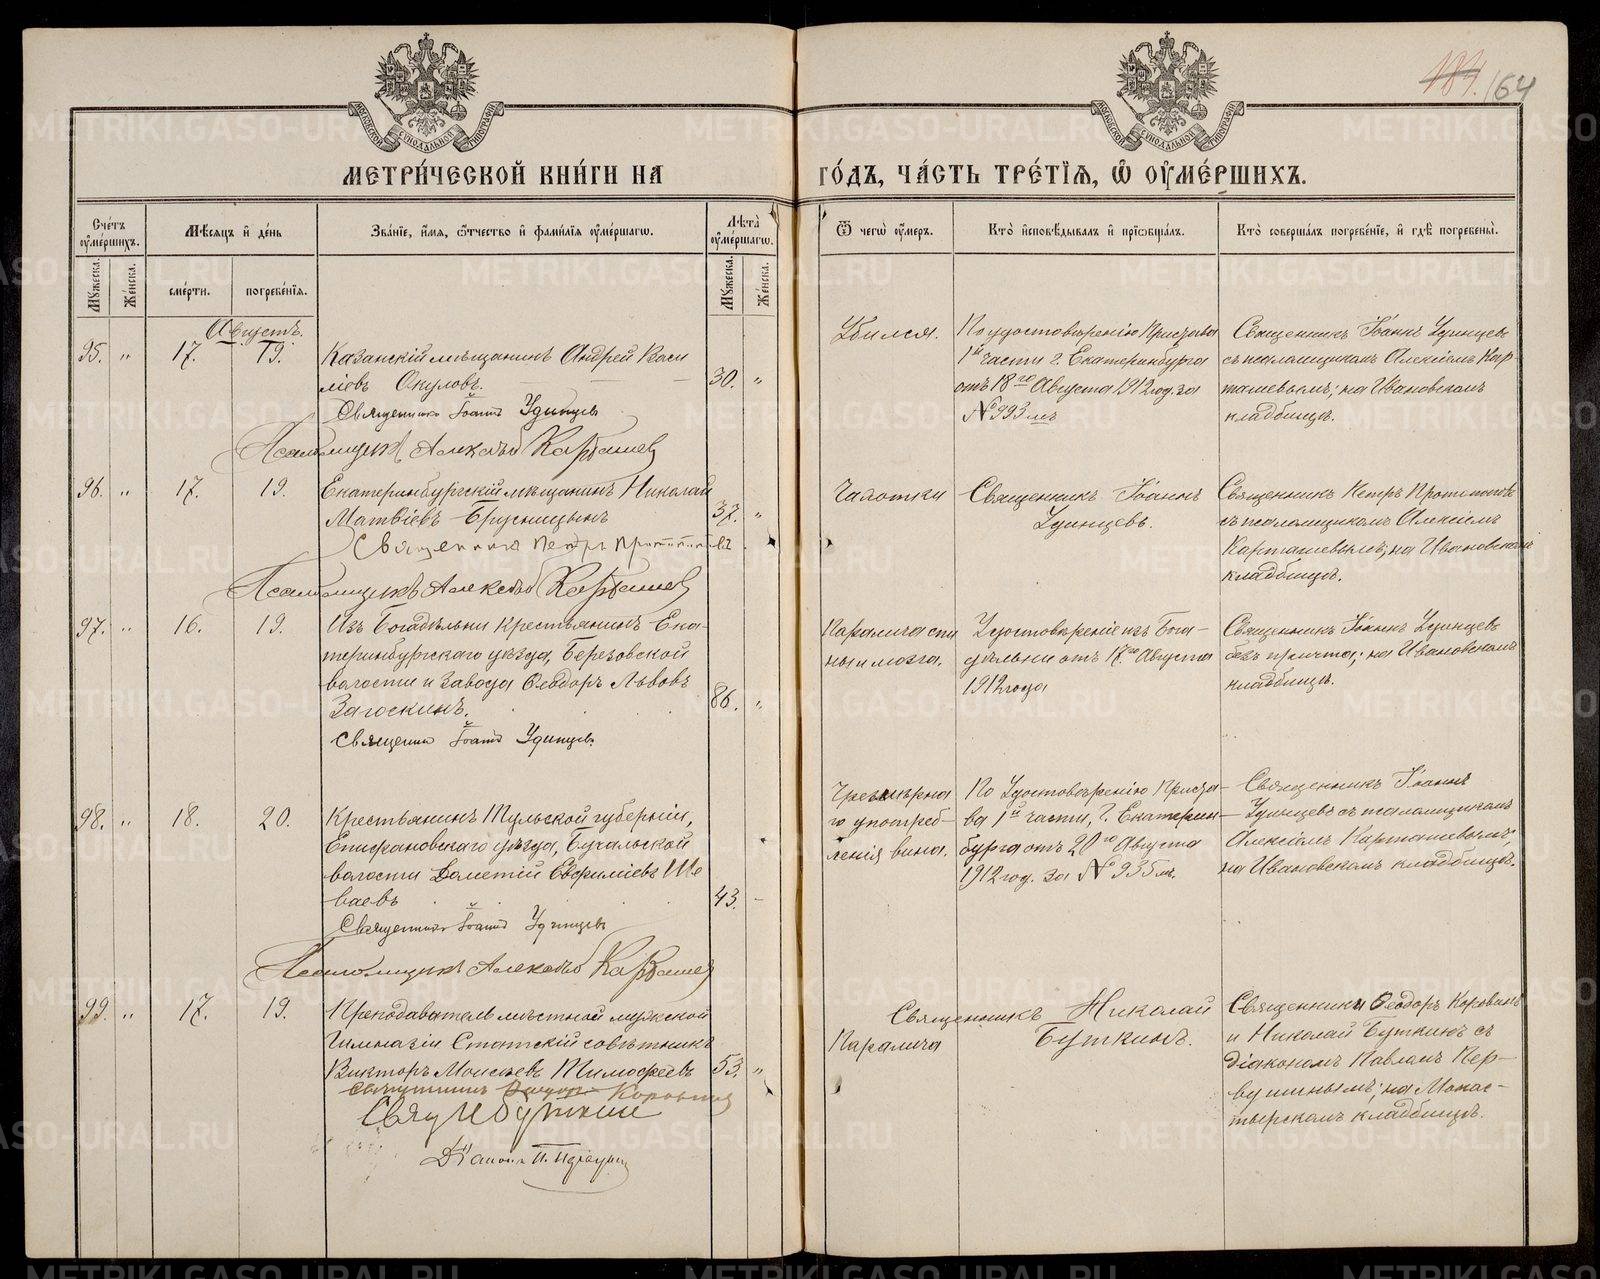 184. 164
МЕТРИ́ЧЕСКОЙ КНИ́ГИ НА ГО́ДЪ, ЧА́СТЬ ТРЕ́ТЇЯ, Ѽ ОУ҆МЕ́РШИХЪ.
Сче́тъ оу҆ме́ршихъ.
Мѣ́сяцъ и҆ де́нь
Зва́нїе, и҆́мя, ѻ҆́тчество и҆ фами́лїя оу҆ме́ршагѡ.
Лѣта̀ оу҆ме́ршагѡ.
Ѿ чегѡ̀ оу҆́меръ.
Кто̀ и҆сповѣ́дывалъ и҆ прїѡбща́лъ.
Кто̀ соверша́лъ погребе́нїе, и҆ гдѣ̀ погребены̀.
Мꙋ́жеска.
Же́нска.
сме́рти.
погребе́нїя.
Мꙋ́жеска.
Же́нска.
Августъ.
95. " 17. 19.
Казанскій мѣщанинъ Андрей Васи
ліевъ Окуловъ. 30. "
Священникъ Іоаннъ Удинцевъ
Псаломщикъ Алексѣй Карташев
Убился.
По удостовѣренію Пристава
1й части г. Екатеринбурга
отъ 18го Августа 1912 год. за
№ 993 мъ
Священникъ Іоаннъ Удинцевъ
съ псаломщикомъ Алексіемъ Кар-
ташевымъ; на Ивановскомъ
кладбищѣ.
96. " 17. 19.
Екатеринбургскій мѣщанинъ Николай
Матвіевъ Брусницынъ 37. "
Священникъ Петръ Протопоповъ
Псаломщикъ Алексѣй Карташев
Чахотки
Священникъ Іоаннъ
Удинцевъ.
Священникъ Петръ Протопоповъ
съ псаломщикомъ Алексіемъ
Карташевымъ; на Ивановскомъ
кладбищѣ.
97. " 16. 19.
Изъ Богадѣльни крестьянинъ Ека-
теринбургскаго уѣзда, Березовской
волости и Завода Ѳеодоръ Львовъ
Загоскинъ. 86. "
Священникъ Іоаннъ Удинцевъ
Паралича спи
ннаго мозга.
Удостовѣреніе изъ Бога-
дѣльни отъ 17го Августа
1912 года
Священникъ Іоаннъ Удинцевъ
безъ причта; на Ивановскомъ
кладбищѣ.
98. " 18. 20.
Крестьянинъ Тульской губерніи,
Епифановскаго уѣзда, Бучальской
волости Дометій Евфиміевъ Ше
ваевъ 43. -
Священникъ Іоаннъ Удинцевъ
Псаломщикъ Алексѣй Карташев
Чрезмѣрна
го употреб-
ленія вина.
По Удостовѣренію Приста-
ва 1й части, г. Екатерин-
бурга отъ 20го Августа
1912 год. за № 935 м.
Священникъ Іоаннъ
Удинцевъ съ псаломщикомъ
Алексіемъ Карташевымъ;
на Ивановскомъ кладбищѣ.
99. " 17. 19.
Преподаватель мѣстной мужской
Гимназіи Статскій совѣтникъ
Викторъ Моисеевъ Тимофеевъ 53. "
Священникъ Коровинъ
Свящ Н Буткинъ
Діаконъ П. Первушин
Паралича
Священникъ Николай
Буткинъ.
Священники Ѳеодоръ Коровинъ
и Николай Буткинъ съ
діакономъ Павломъ Пер-
вушинымъ; на Монас-
тырскомъ кладбищѣ.
METRIKI.GASO-URAL.RU